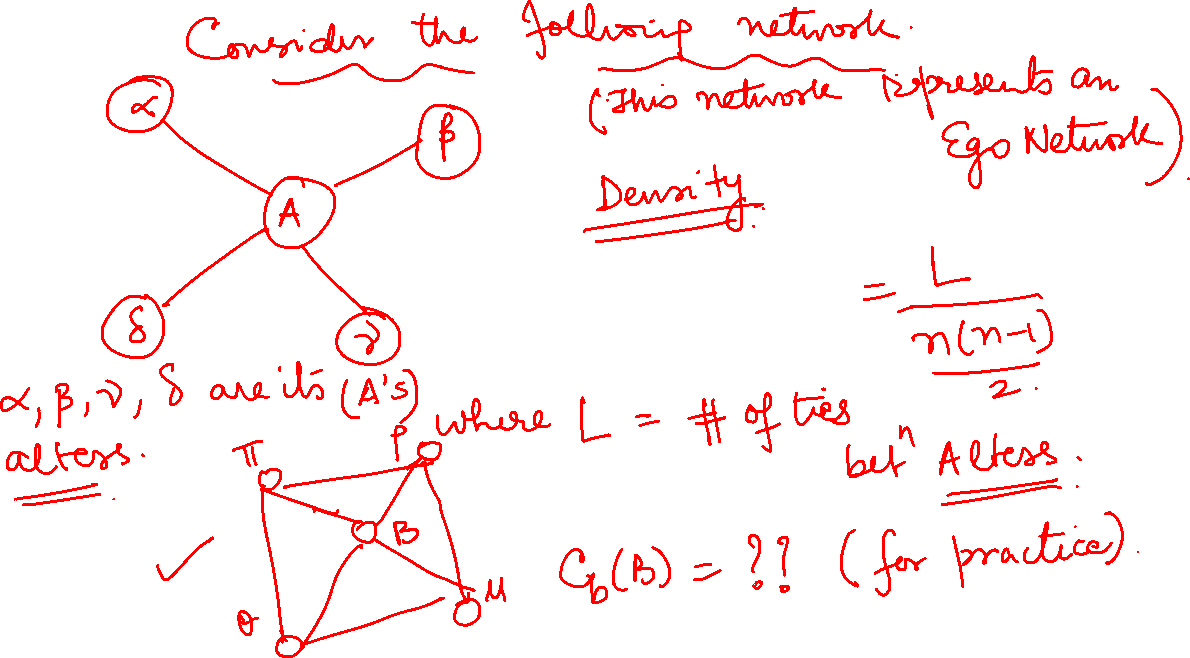 Consider the following network.
(This network represents an
Ego Network).
α
β
A
Density.
δ
ν
= L
n(n-1)
2.
α, β, ν, δ are its (A's)
alters.
where L = # of ties
betⁿ Alters.
π
ρ
B
C_b(B) = ?? (for practice).
μ
θ